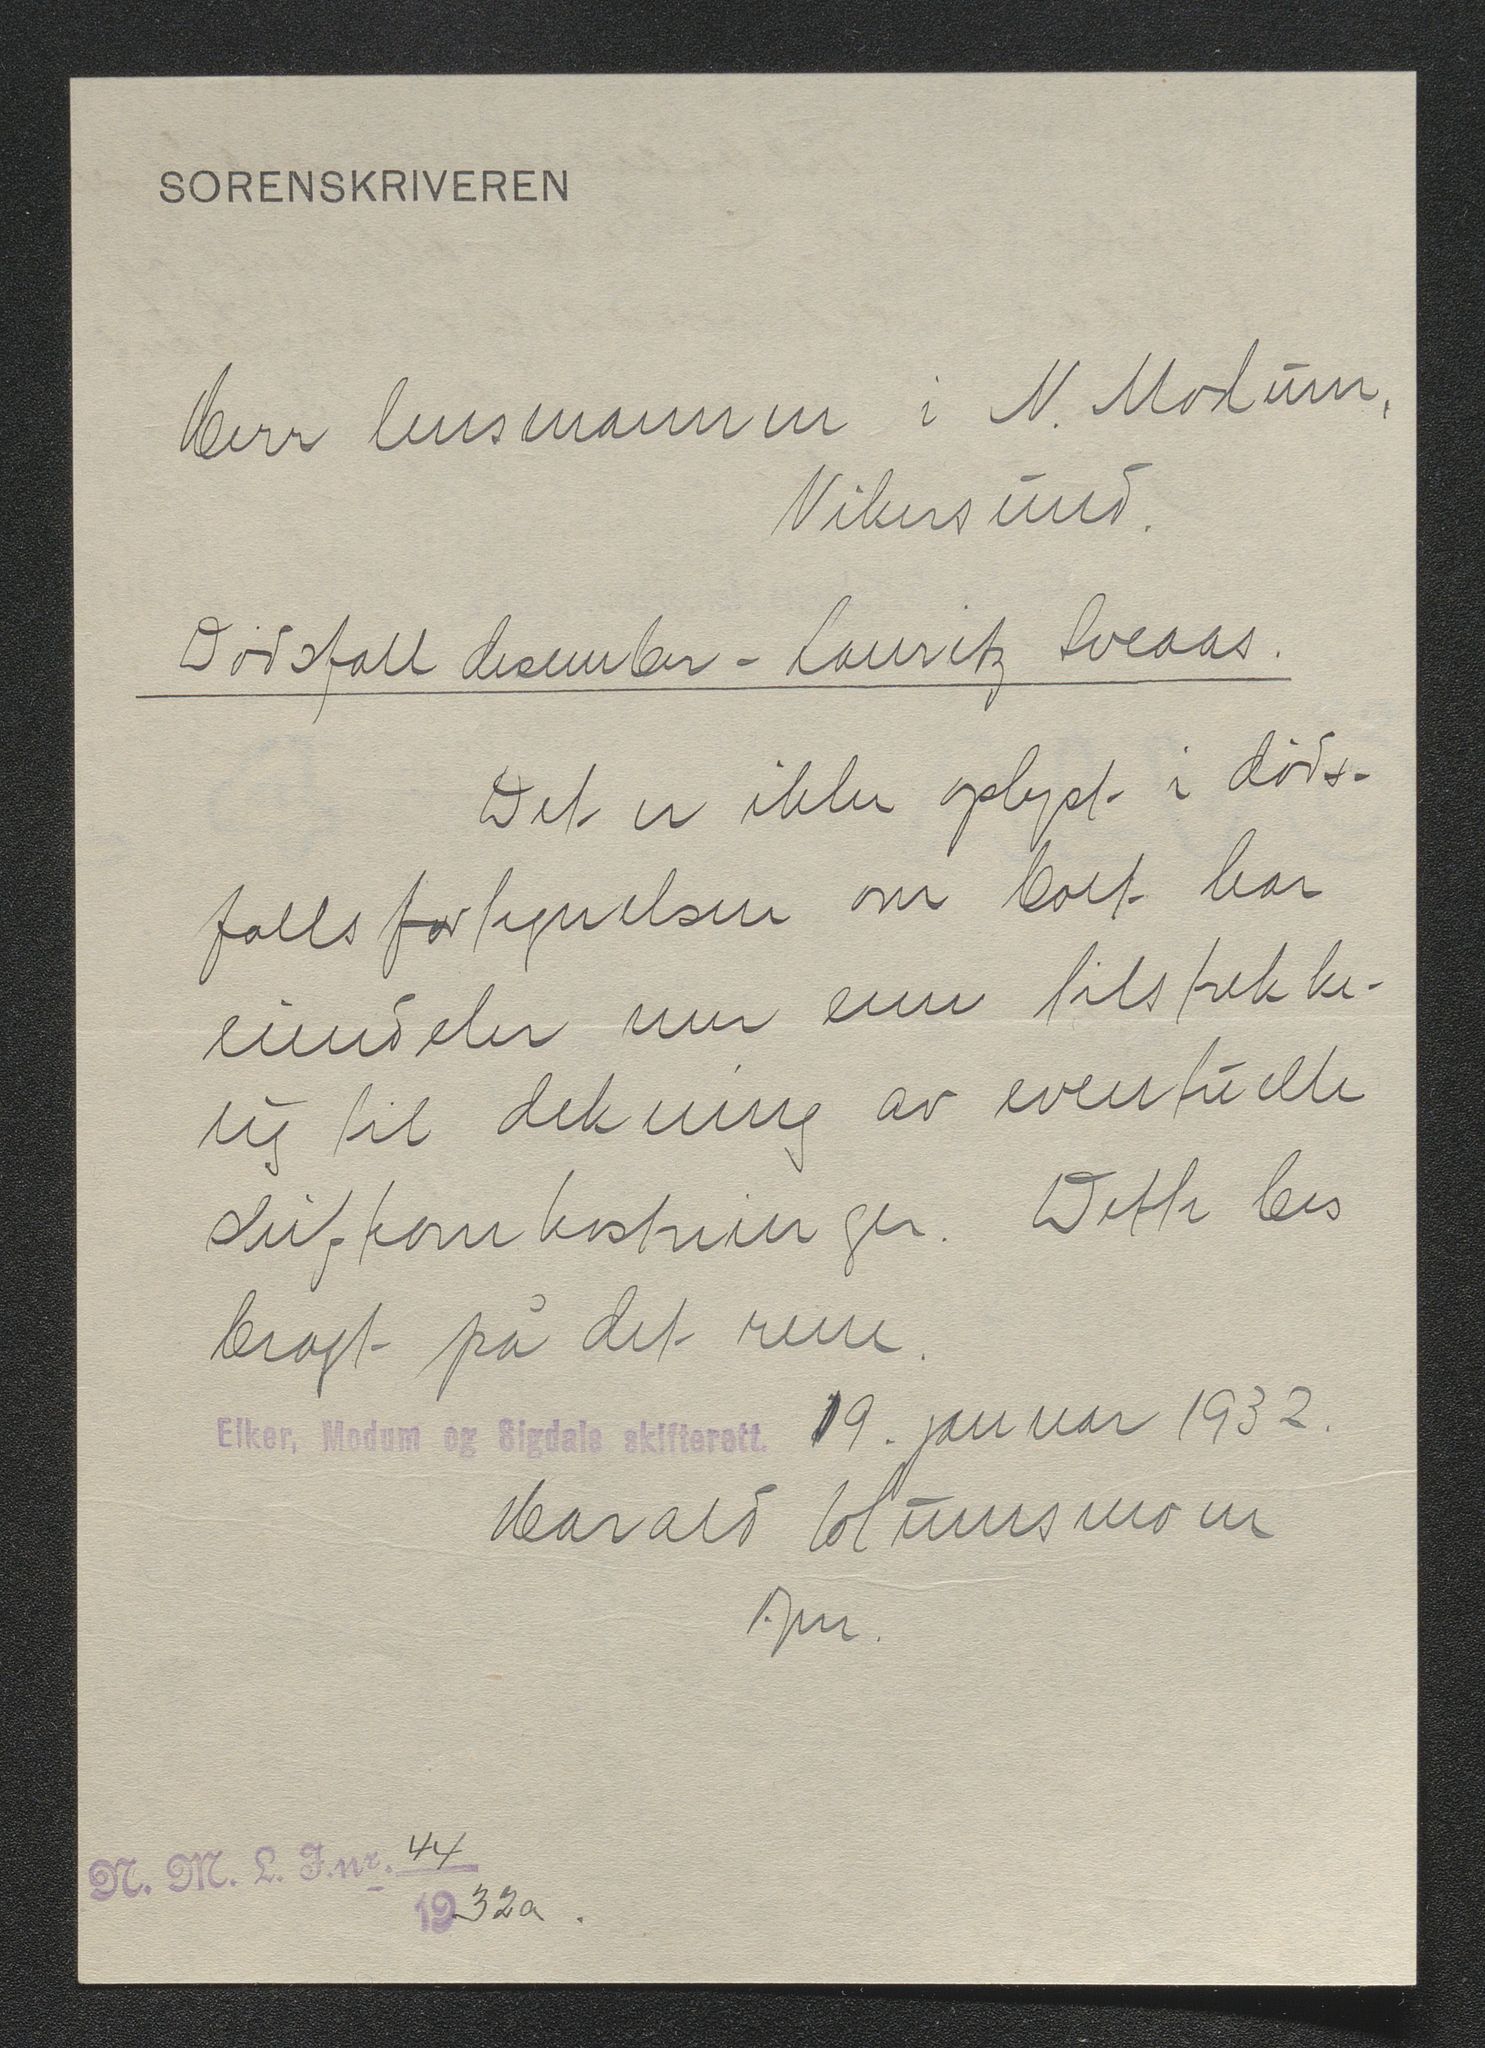 SORENSKRIVEREN
Herr lensmannen i N. Modum,
Vikersund.
Dødsfall desember - Lauritz Sveaas.
Det er ikke oplyst i døds-
fallsfortegnelsen om boet har
eiendeler mer enn tilstrekke-
lig til dekning av eventuelle
skifteomkostninger. Dette bes
bragt på det rene.
Eiker, Modum og Sigdals skifterett. 19. januar 1932.
Harald
N. M. L. J.nr. 44
1932a.